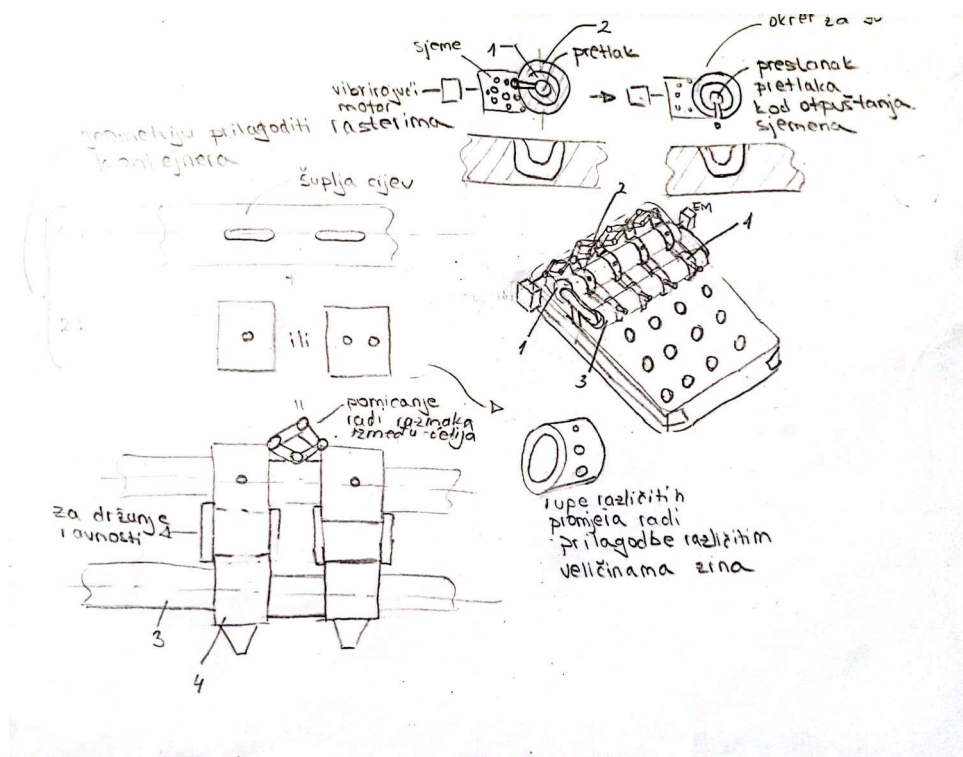 sjeme
1
2
pretlak
vibrirajući
motor
okret za
prestanak
pretlaka
kod otpuštanja
sjemena
geometriju prilagoditi rasterima
kontejnera
šuplja cijev
2
EM
1
1
3
2:
ili
pomicanje
radi razmaka
između ćelija
za držanje
ravnosti
3
4
rupe različitih
promjera radi
prilagodbe različitim
veličinama zrna